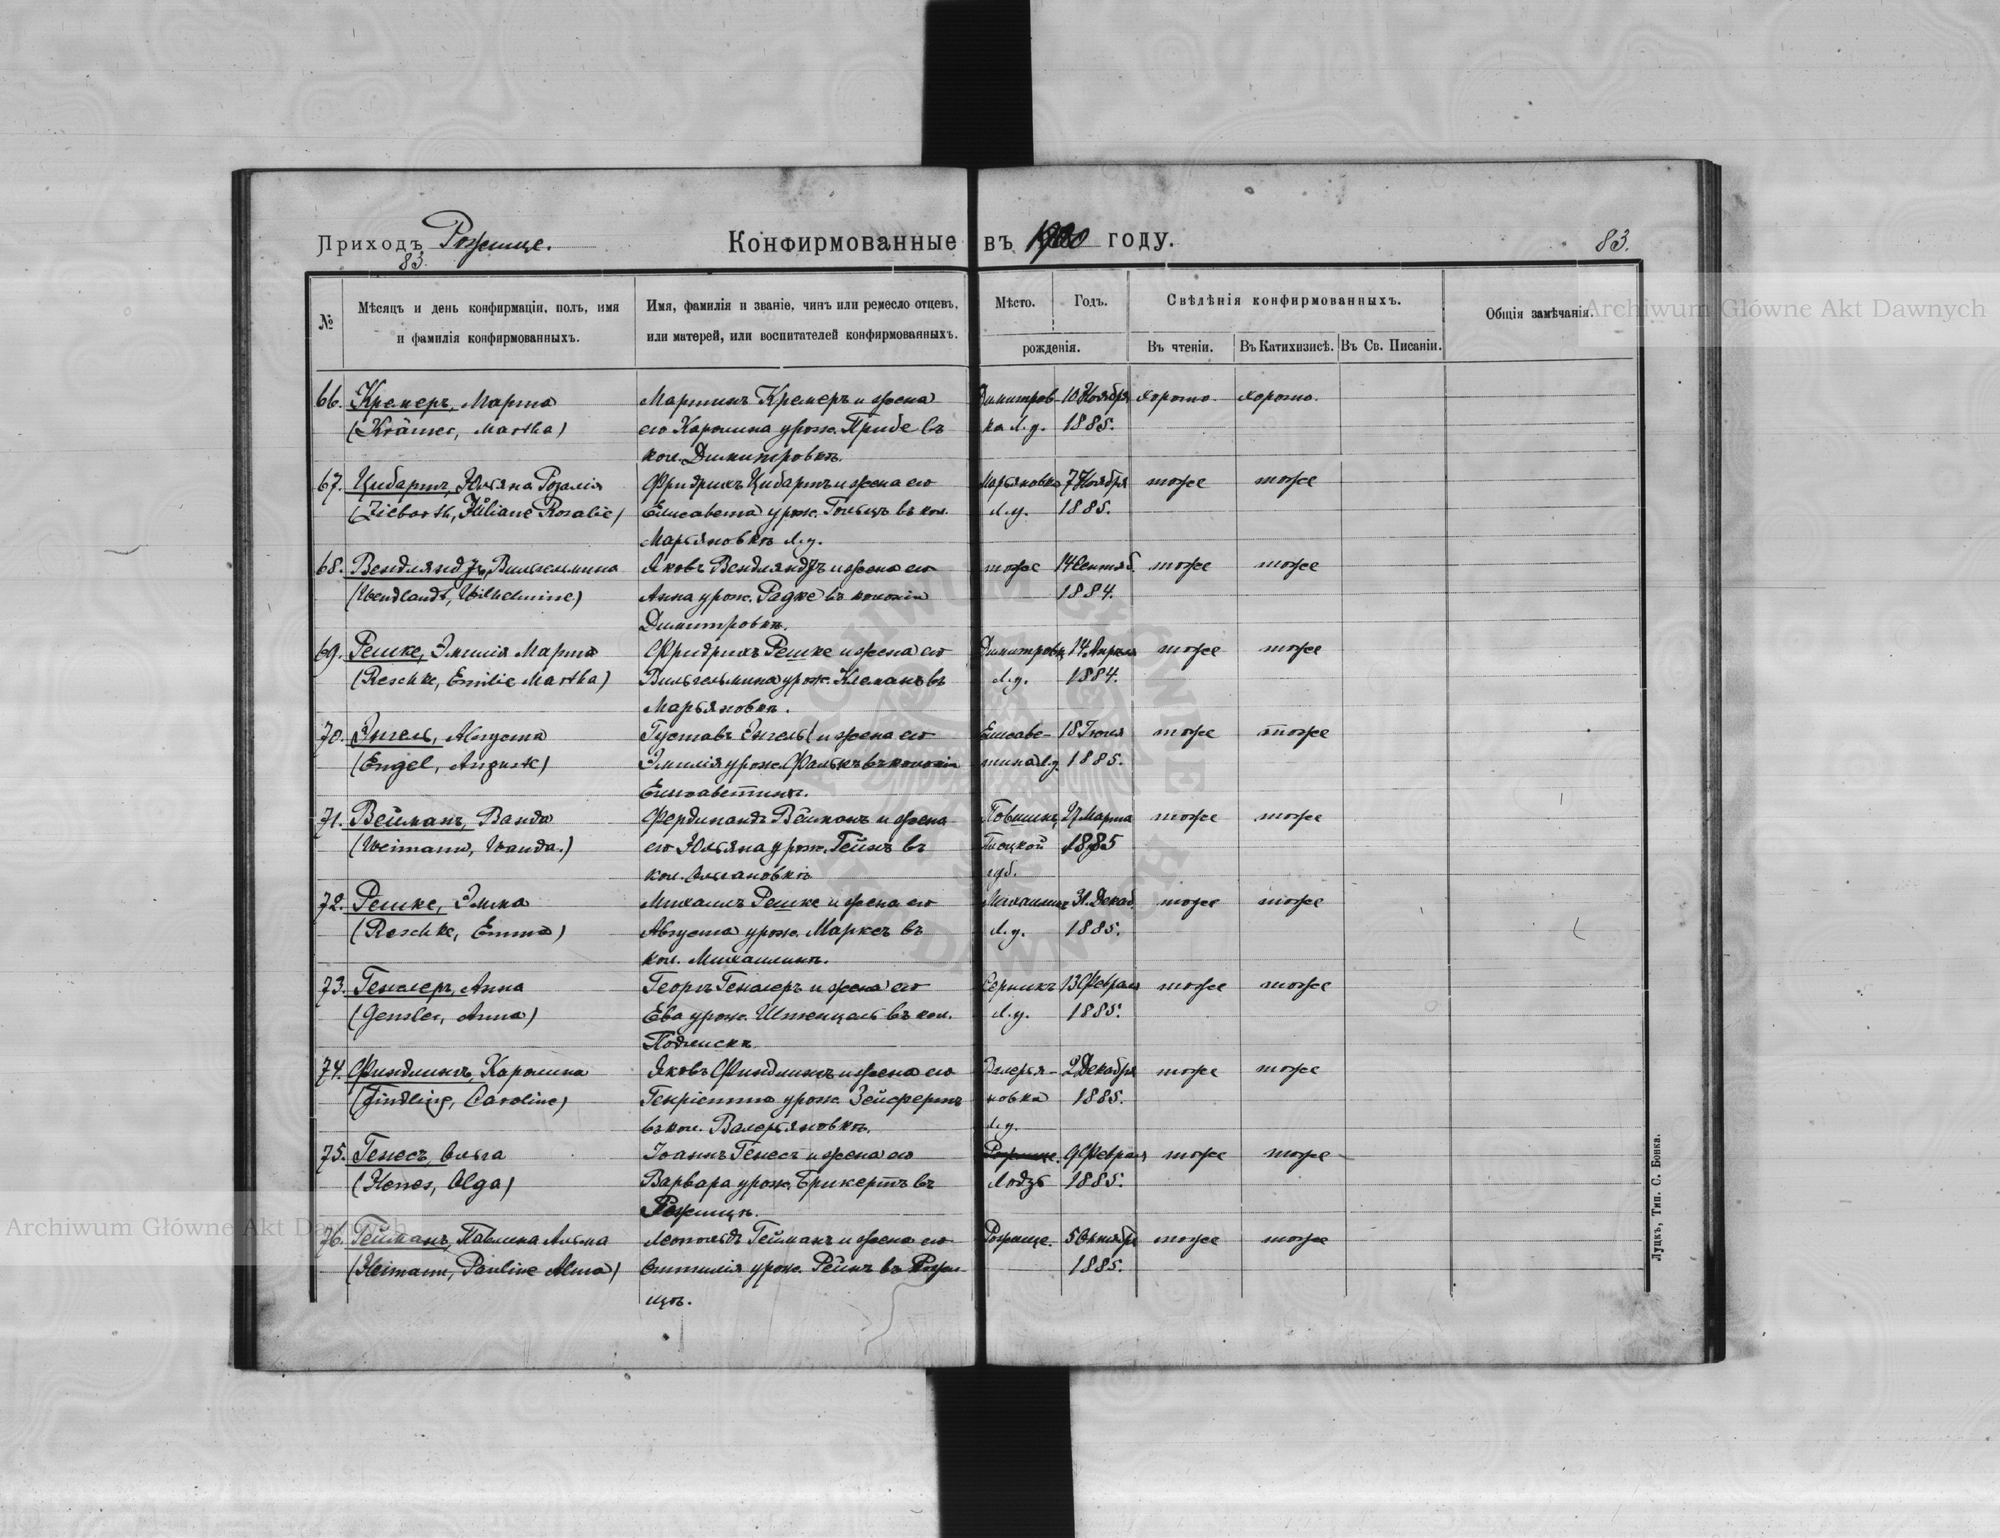 Приходъ Рожище.
83.
Конфирмованные въ 1900 году.
83.
№
Мѣсяцъ и день конфирмаціи, полъ, имя
и фамилія конфирмованныхъ.
Имя, фамилія и званіе, чинъ или ремесло отцевъ,
или матерей, или воспитателей конфирмованныхъ.
Мѣсто.
Годъ.
рожденія.
Свѣдѣнія конфирмованныхъ.
Въ чтеніи.
Въ Катихизисѣ.
Въ Св. Писаніи.
Общія замѣчанія.
Archiwum Główne Akt Dawnych
66. Кремеръ, Марта Мартинъ Кремеръ и жена Димитров- 10 Ноября хорошо. хорошо.
(Krämer, Martha) его Каролина урож. Приве въ ка Л.у. 1885.
кол. Димитровкѣ.
67. Цибартъ, Юльяна Розалія Фридрихъ Цибартъ и жена его Марьяновка 7 Ноября тоже тоже
(Ziebarth, Juliane Rosalie) Елисавета урож. Гольцъ въ кол. Л.у. 1885.
Марьяновкѣ Л.у.
68. Вендляндъ, Вильгельмина Яковъ Вендляндъ и жена его тоже 14 Сентяб. тоже тоже
(Wendlandt, Wilhelmine) Анна урож. Радке въ колоніи 1884.
Димитровкѣ.
69. Решке, Эмилія Марта Фридрихъ Решке и жена его Димитровка 14 Апрѣля тоже тоже
(Reschke, Emilie Martha) Вильгельмина урож. Клеманъ въ Л.у. 1884.
Марьяновкѣ.
70. Энгель, Августа Густавъ Энгель и жена его Елисаве- 18 Іюля тоже тоже
(Engel, Auguste) Эмилія урож. Фалькъ въ колоніи тина Л.у. 1885.
Елисаветинѣ.
71. Вейманъ, Ванда Фердинандъ Вейманъ и жена 27 Марта тоже тоже
(Weimann, Wanda.) его Юльяна урож. Гейнъ въ Плоцкой 1885
кол. губ.
72. Решке, Эмма Михаилъ Решке и жена его Михаилинъ 31. Декаб. тоже тоже
(Reschke, Emma) Августа урож. Марксъ въ Л.у. 1885.
кол. Михаилинѣ.
73. Генслеръ, Анна Георгъ Генслеръ и жена его Серникъ 13 Февраля тоже тоже
(Gensler, Anna) Ева урож. Штенцель въ кол. Л.у. 1885.
74. Финдлингъ, Каролина Яковъ Финдлингъ и жена его Валерья- 2 Декабря тоже тоже
(Findling, Caroline) Генріетта урож. Зейфертъ новка 1885.
въ кол. Валерьяновкѣ. Л.у.
75. Генесъ, Ольга Іоаннъ Генесъ и жена его Рожище. 9 Февраля тоже тоже
(Henes, Olga) Варвара урож. Брикертъ въ Лодзь 1885.
Рожищѣ.
Archiwum Główne Akt Dawnych
76. Гейманъ, Павлина Альма Леопольдъ Гейманъ и жена его Рожище. 5 Октября тоже тоже
(Heimann, Pauline Alma) Оттилія урож. Рейнъ въ Рожи- 1885.
щѣ.
Луцкъ, Тип. С. Бонка.